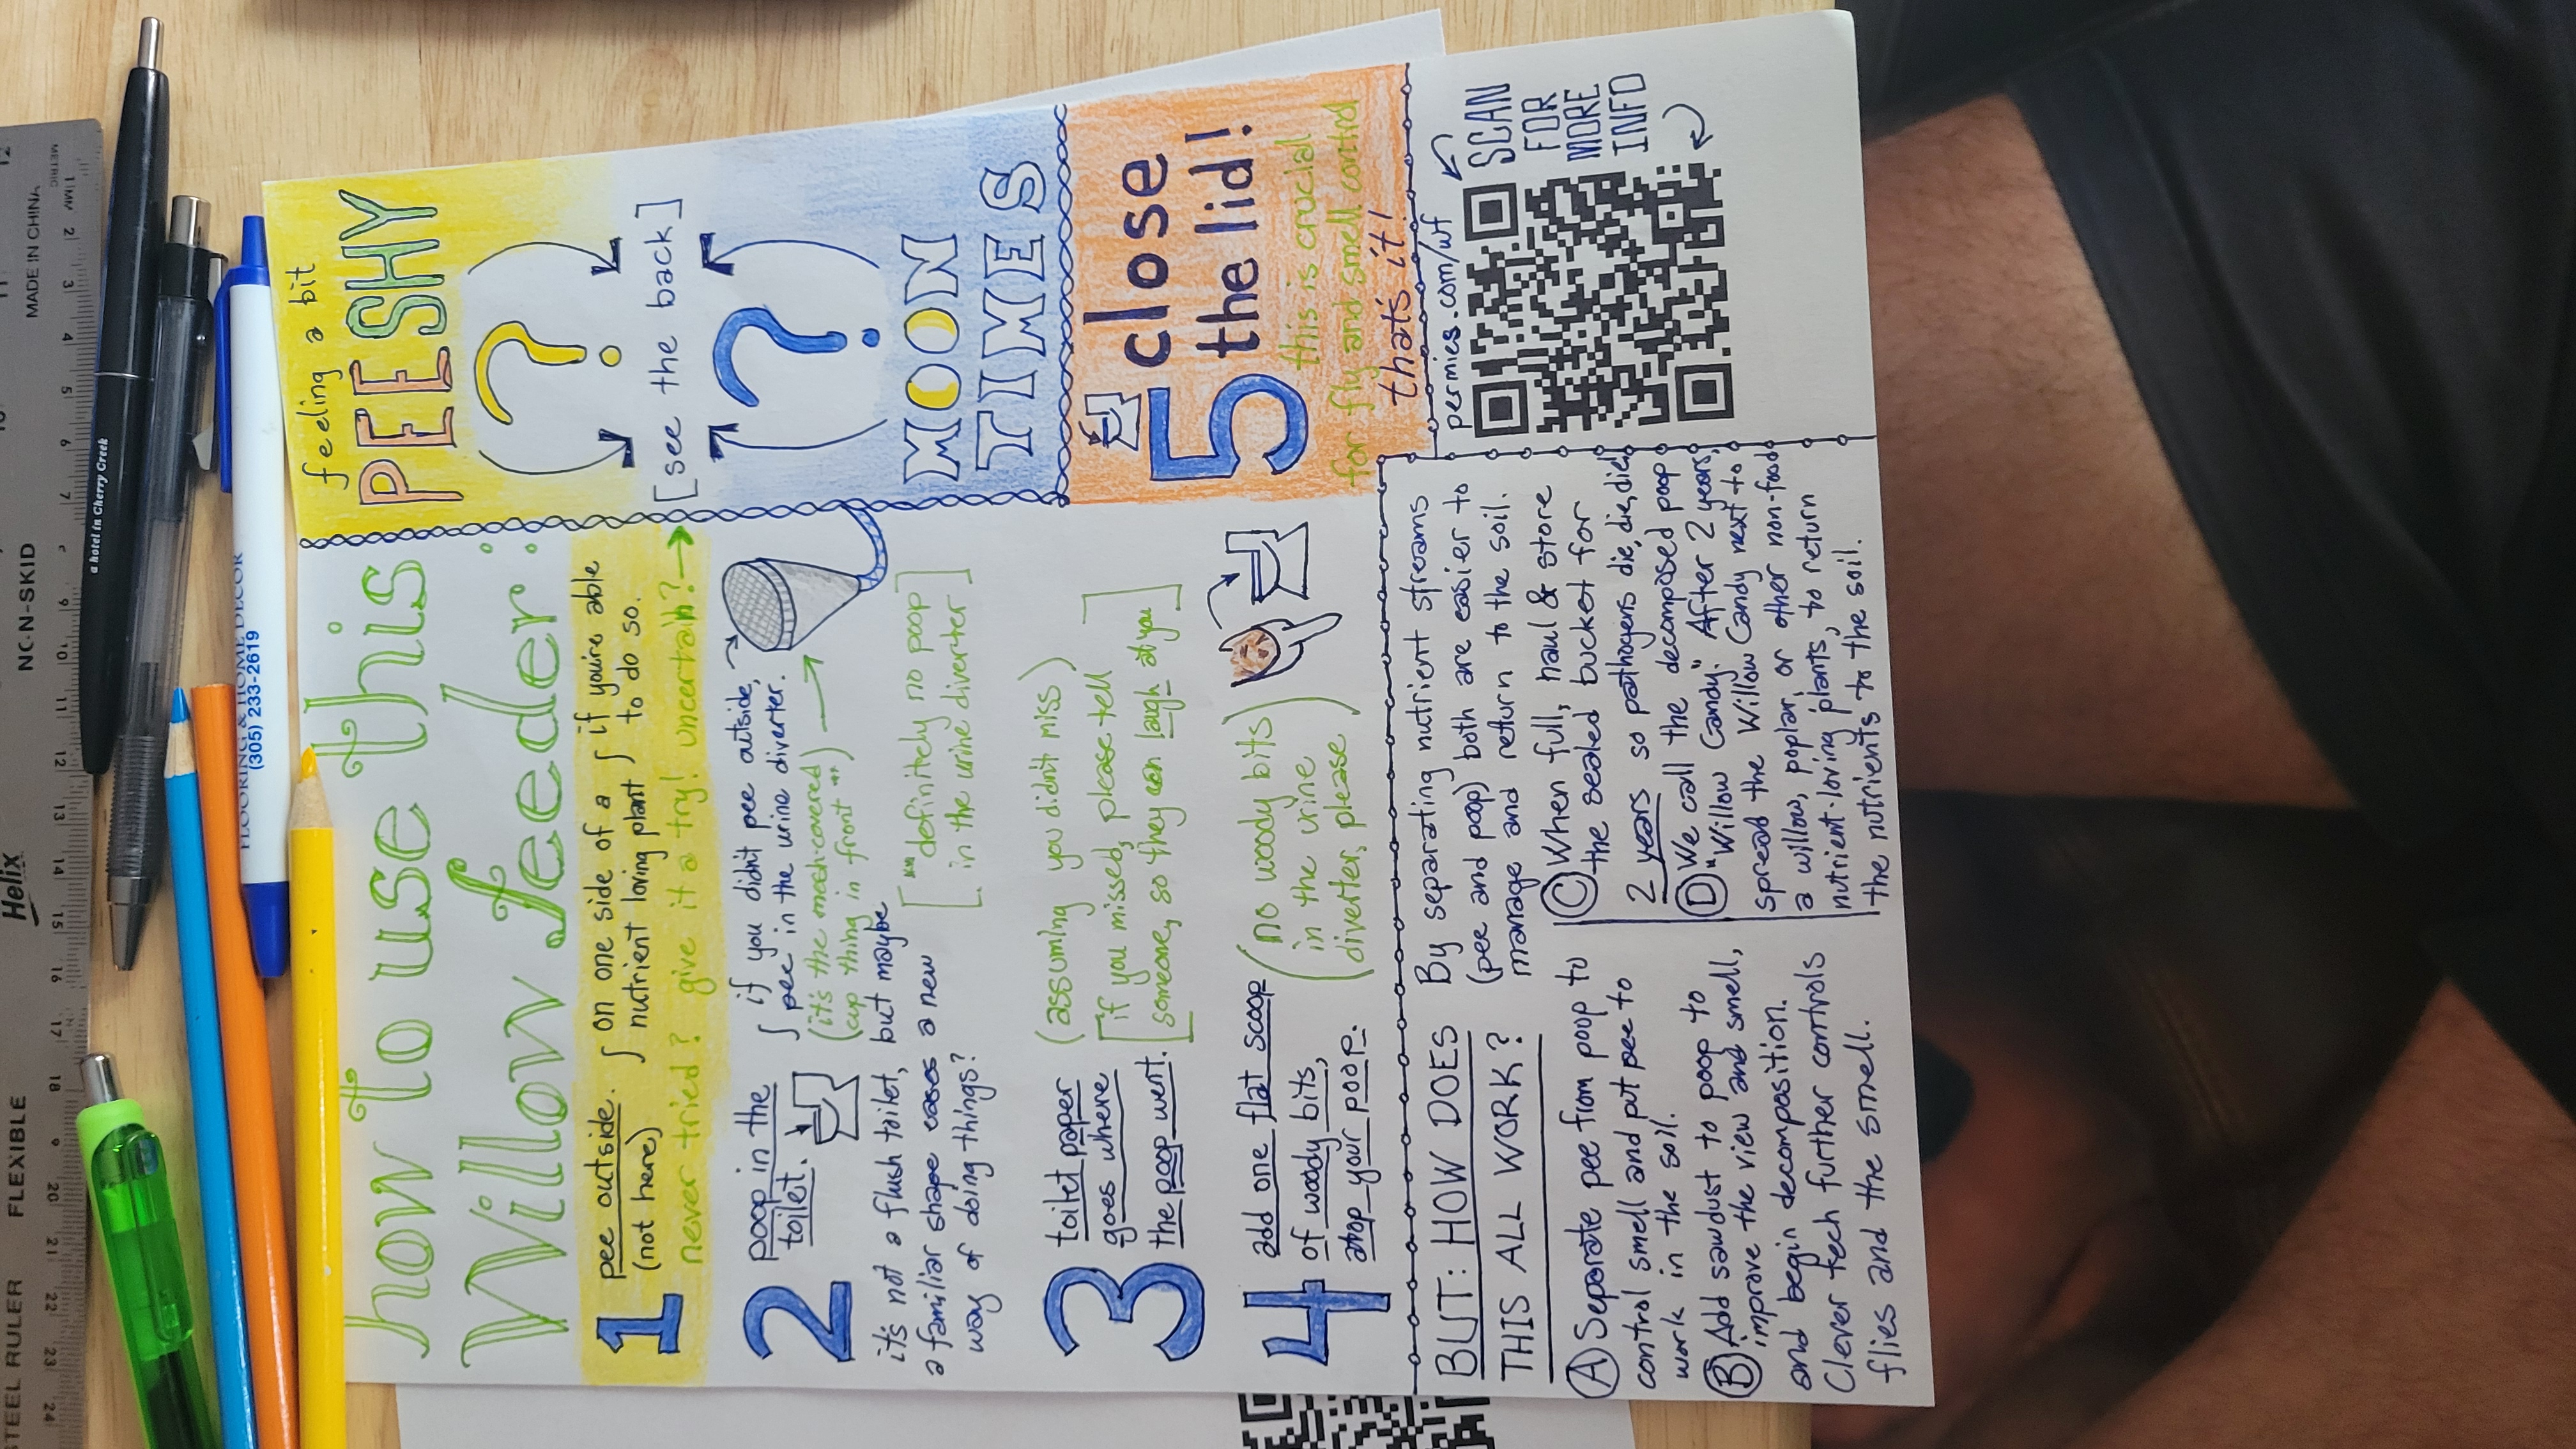 how to use this
Willow feeder:
1 pee outside. (not here)
on one side of a nutrient loving plant
if you're able to do so.
never tried? give it a try! uncertain? →
2 poop in the toilet.
if you didn't pee outside,
pee in the urine diverter.
(it's the mesh-covered
cup thing in front ***)
it's not a flush toilet, but maybe
a familiar shape eases a new
way of doing things?
[***definitely no poop
in the urine diverter]
3 toilet paper
goes where
the poop went.
(assuming you didn't miss)
[if you missed, please tell
someone, so they can laugh at you]
4 add one flat scoop
of woody bits,
atop your poop.
(no woody bits
in the urine
diverter, please)
feeling a bit
PEESHY
?
[see the back]
?
MOON
TIMES
5 close
the lid!
this is crucial
for fly and smell control
that's it!
BUT: HOW DOES
THIS ALL WORK?
By separating nutrient streams
(pee and poop) both are easier to
manage and return to the soil.
A Separate pee from poop to
control smell and put pee to
work in the soil.
B Add sawdust to poop to
improve the view and smell,
and begin decomposition.
Clever tech further controls
flies and the smell.
C When full, haul & store
the sealed bucket for
2 years so pathogens die, die, die!
D We call the decomposed poop
"Willow Candy." After 2 years,
spread the Willow Candy next to
a willow, poplar, or other non-food
nutrient-loving plants, to return
the nutrients to the soil.
permies.com/wf
SCAN
FOR
MORE
INFO
MADE IN CHINA
METRIC
1 MM 2 3 4 5 6 7 9 10 11 12 13 14 15 16 17 18 20 21 22 23 24
NON-SKID
Helix
FLEXIBLE
STEEL RULER
a hotel in Cherry Creek
FLOORING & HOME DECOR
(305) 233-2619